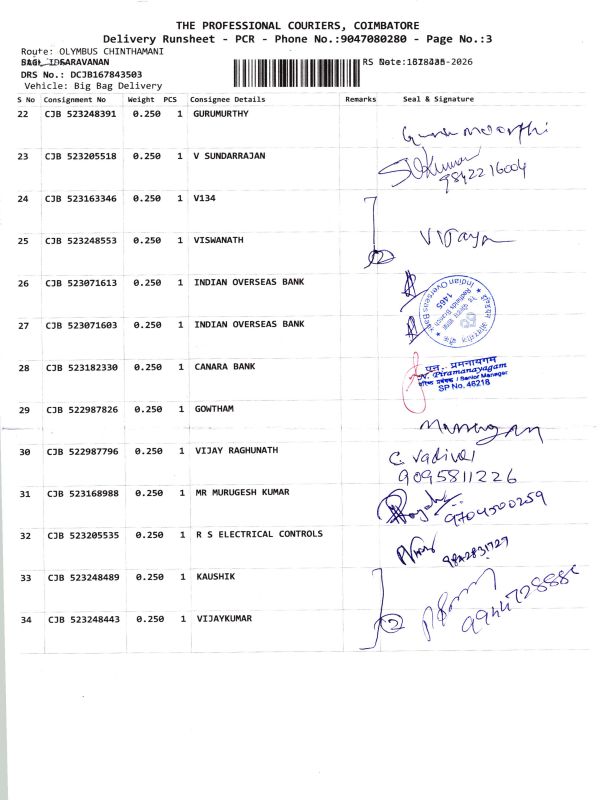 THE PROFESSIONAL COURIERS, COIMBATORE
Delivery Runsheet - PCR - Phone No.:9047080280 - Page No.:3
Route: OLYMBUS CHINTHAMANI
SARAVANAN
DRS No.: DCJB167843503
Vehicle: Big Bag Delivery
S No Consignment No Weight PCS Consignee Details Remarks Seal & Signature
22 CJB 523248391 0.250 1 GURUMURTHY
23 CJB 523205518 0.250 1 V SUNDARRAJAN
9842216004
24 CJB 523163346 0.250 1 V134
25 CJB 523248553 0.250 1 VISWANATH
2
26 CJB 523071613 0.250 1 INDIAN OVERSEAS BANK
Indian Overseas Bank
1465
27 CJB 523071603 0.250 1 INDIAN OVERSEAS BANK
28 CJB 523182330 0.250 1 CANARA BANK
N. Piramanayagam
/ Senior Manager
SP No. 46218
29 CJB 522987826 0.250 1 GOWTHAM
Murugan
30 CJB 522987796 0.250 1 VIJAY RAGHUNATH C. Vadivel
9095811226
31 CJB 523168988 0.250 1 MR MURUGESH KUMAR
9704500259
32 CJB 523205535 0.250 1 R S ELECTRICAL CONTROLS
33 CJB 523248489 0.250 1 KAUSHIK
34 CJB 523248443 0.250 1 VIJAYKUMAR
2